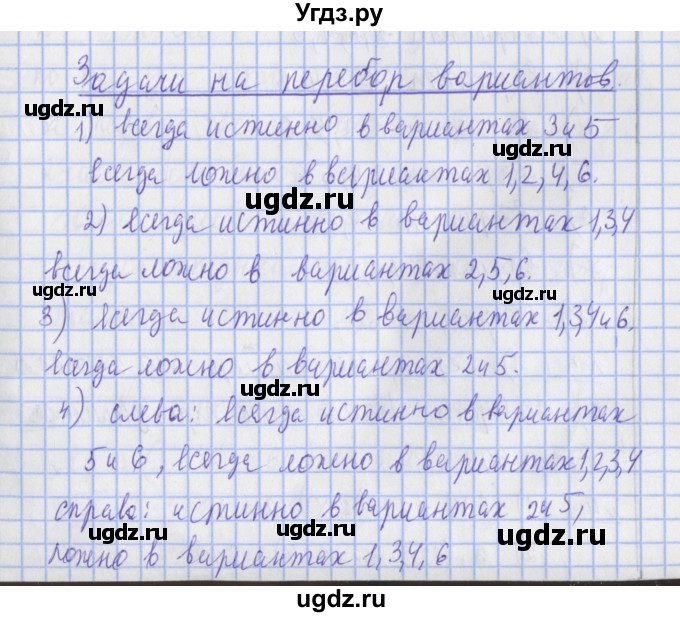 Угдз.ру
Задачи на перебор вариантов.
1) всегда истинно в вариантах 3 и 5
всегда ложно в вариантах 1,2,4,6.
2) всегда истинно в вариантах 1,3,4
всегда ложно в вариантах 2,5,6.
3) всегда истинно в вариантах 1,3,4 и 6.
всегда ложно в вариантах 2 и 5.
4) слева: всегда истинно в вариантах
5 и 6, всегда ложно в вариантах 1,2,3,4
справа: истинно в вариантах 2 и 5,
ложно в вариантах 1,3,4,6
ugdz.ru
ugdz.ru
ugdz.ru
ugdz.ru
ugdz.ru
ugdz.ru
ugdz.ru
ugdz.ru
ugdz.ru
ugdz.ru
ugdz.ru